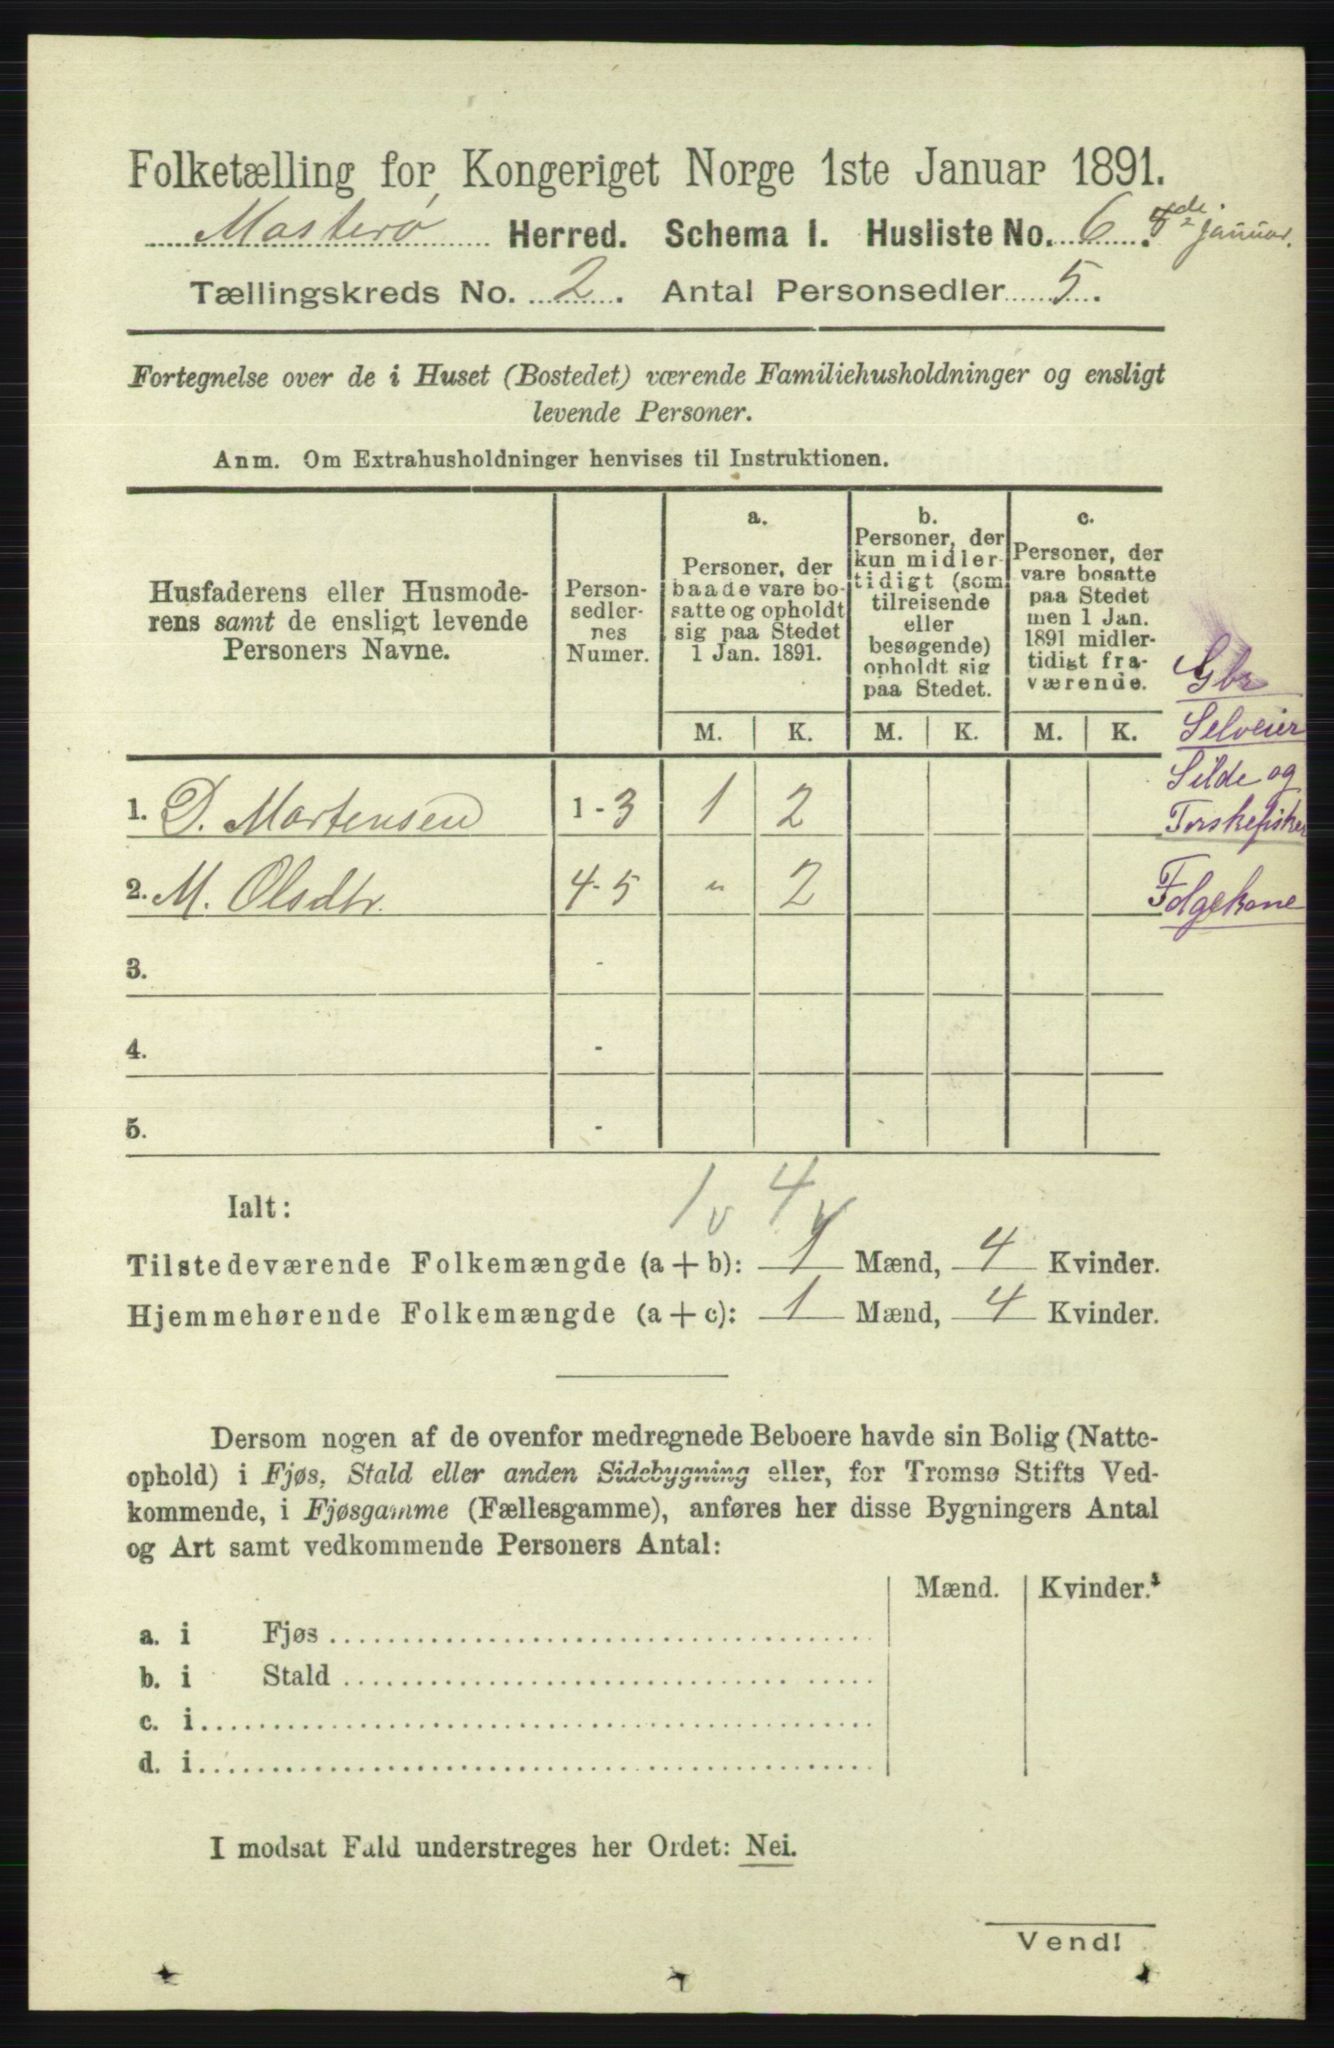 Folketælling for Kongeriget Norge 1ste Januar 1891.
Mosterø Herred. Schema I. Husliste No. 6. Januar.
Tællingskreds No. 2. Antal Personsedler 5.
Fortegnelse over de i Huset (Bostedet) værende Familiehusholdninger og ensligt
levende Personer.
Anm. Om Extrahusholdninger henvises til Instruktionen.
Husfaderens eller Husmode-
rens samt de ensligt levende
Personers Navne.
Person-
sedler-
nes
Numer.
a.
Personer, der
baade vare bo-
satte og opholdt
sig paa Stedet
1 Jan. 1891.
b.
Personer, der
kun midler-
tidigt (som
tilreisende
eller
besøgende)
opholdt sig
paa Stedet.
c.
Personer, der
vare bosatte
paa Stedet
men 1 Jan.
1891 midler-
tidigt fra-
værende.
M. K. M. K. M. K.
Gbr
Selveier
Silde og
Torskefisker
1. D. Mortensen 1 - 3 1 2
2. M. Olsdtr. 4 - 5 " 2 Folgekone
3. -
4. -
5. -
1 v 4 v
Ialt:
Tilstedeværende Folkemængde (a + b): 1 Mænd, 4 Kvinder.
Hjemmehørende Folkemængde (a + c): 1 Mænd, 4 Kvinder.
Dersom nogen af de ovenfor medregnede Beboere havde sin Bolig (Natte-
ophold) i Fjøs, Stald eller anden Sidebygning eller, for Tromsø Stifts Ved-
kommende, i Fjøsgamme (Fællesgamme), anføres her disse Bygningers Antal
og Art samt vedkommende Personers Antal:
Mænd. Kvinder.
a. i Fjøs
b. i Stald
c. i
d. i
I modsat Fald understreges her Ordet: Nei.
Vend!